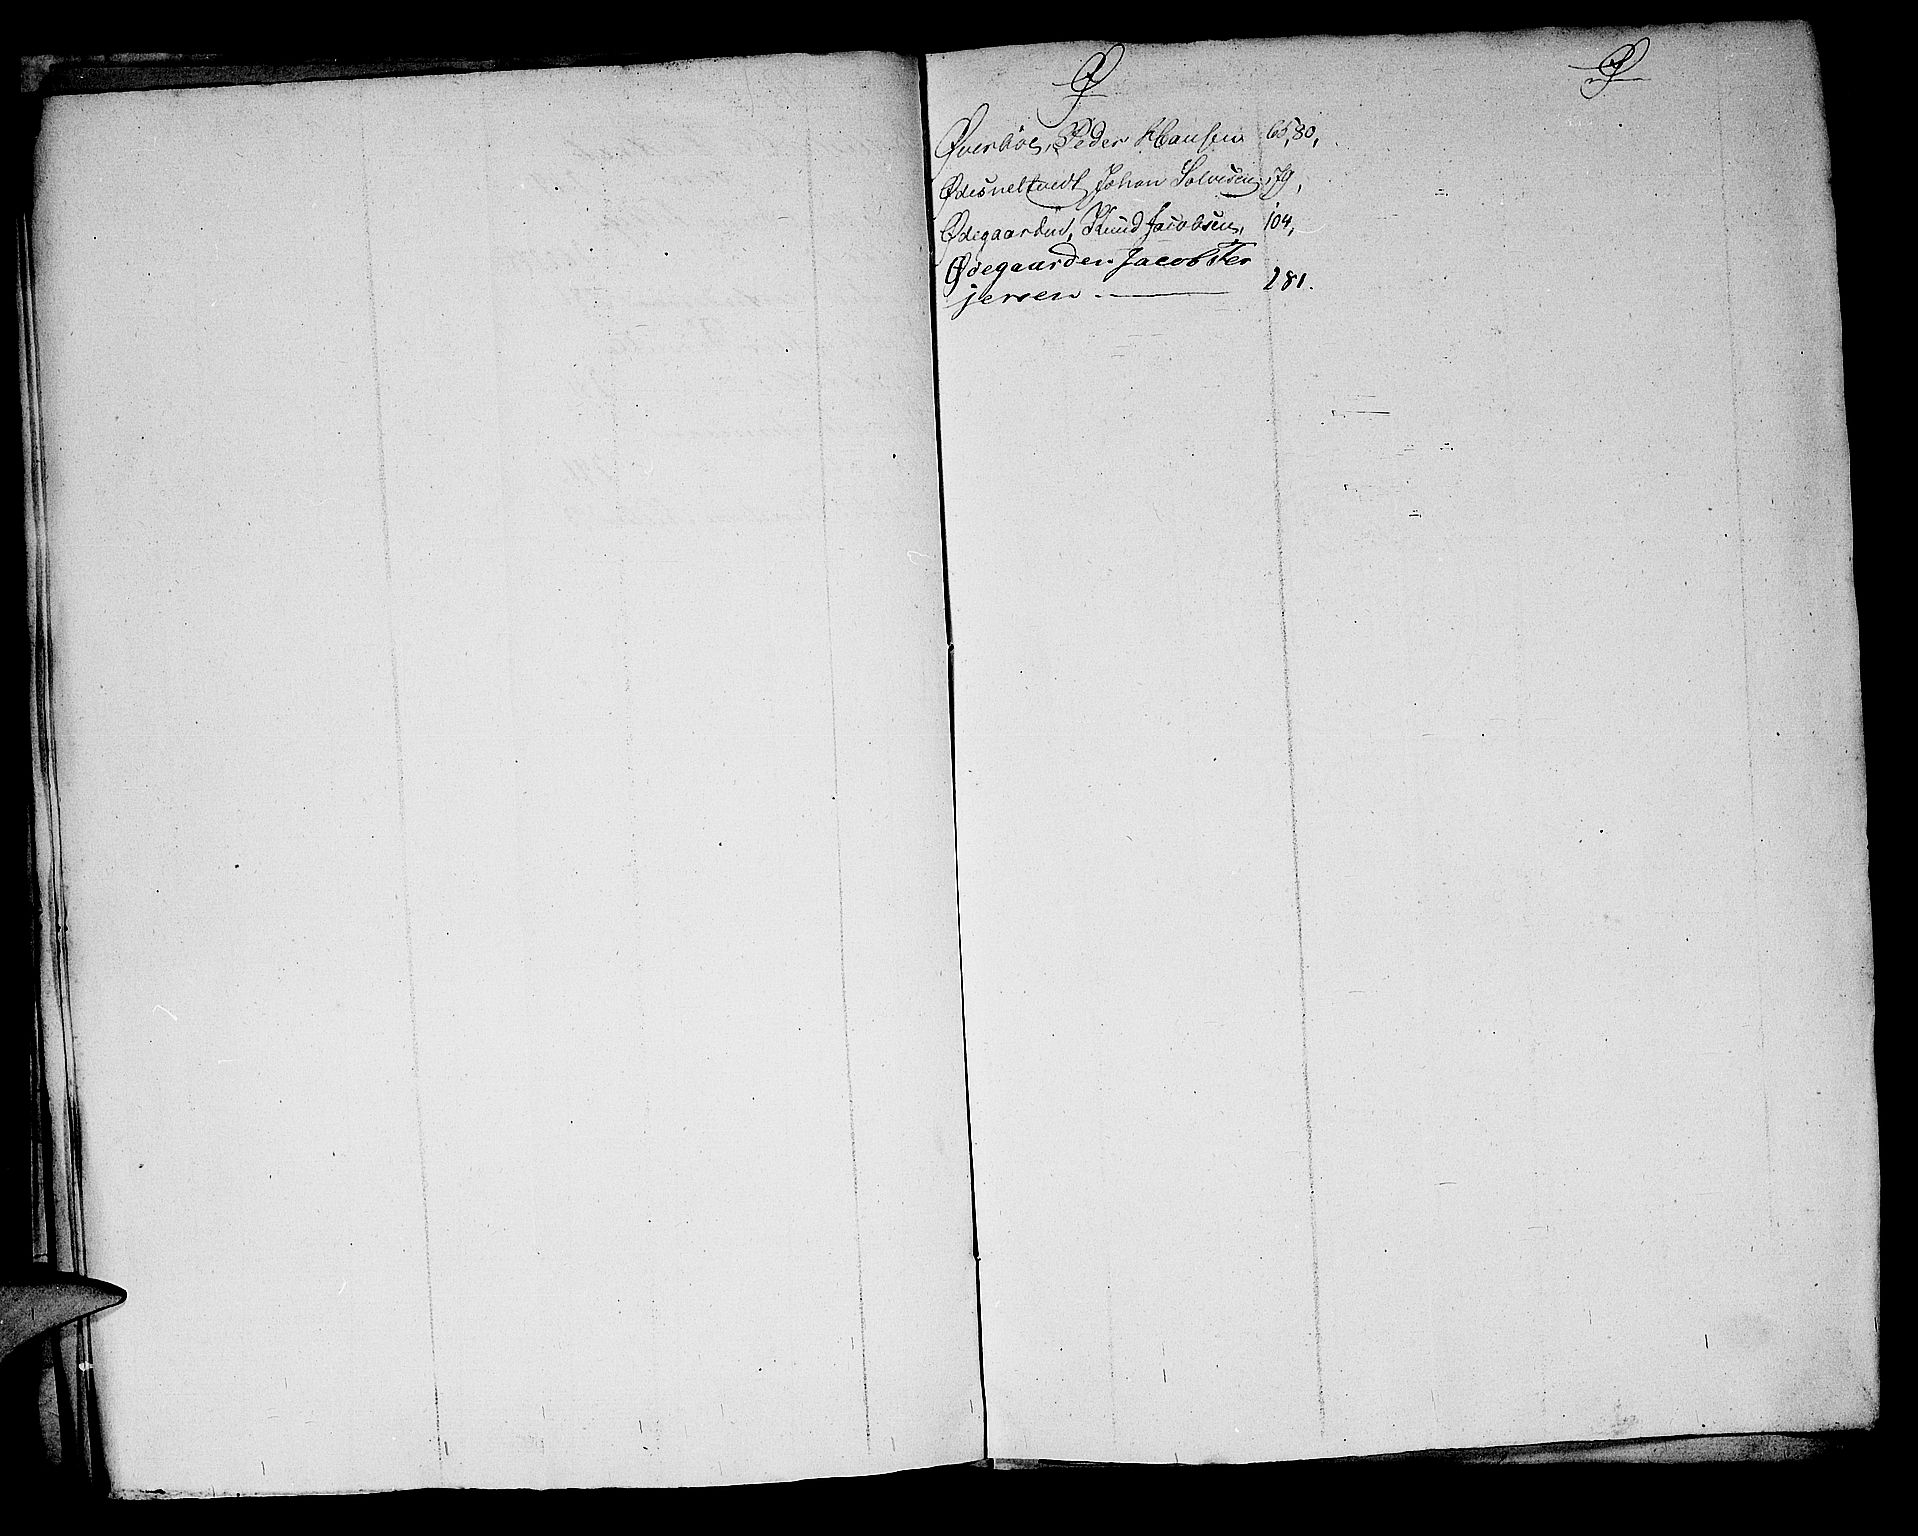 Ø Ø
Øverböe, Peder Hansen 65, 80,
Ødesneltvedt, Johan Solvesen, 79,
Ødegaarden, Knud Jacobsen, 104,
Ødegaarden Jacob Ter
jersen. — 281.